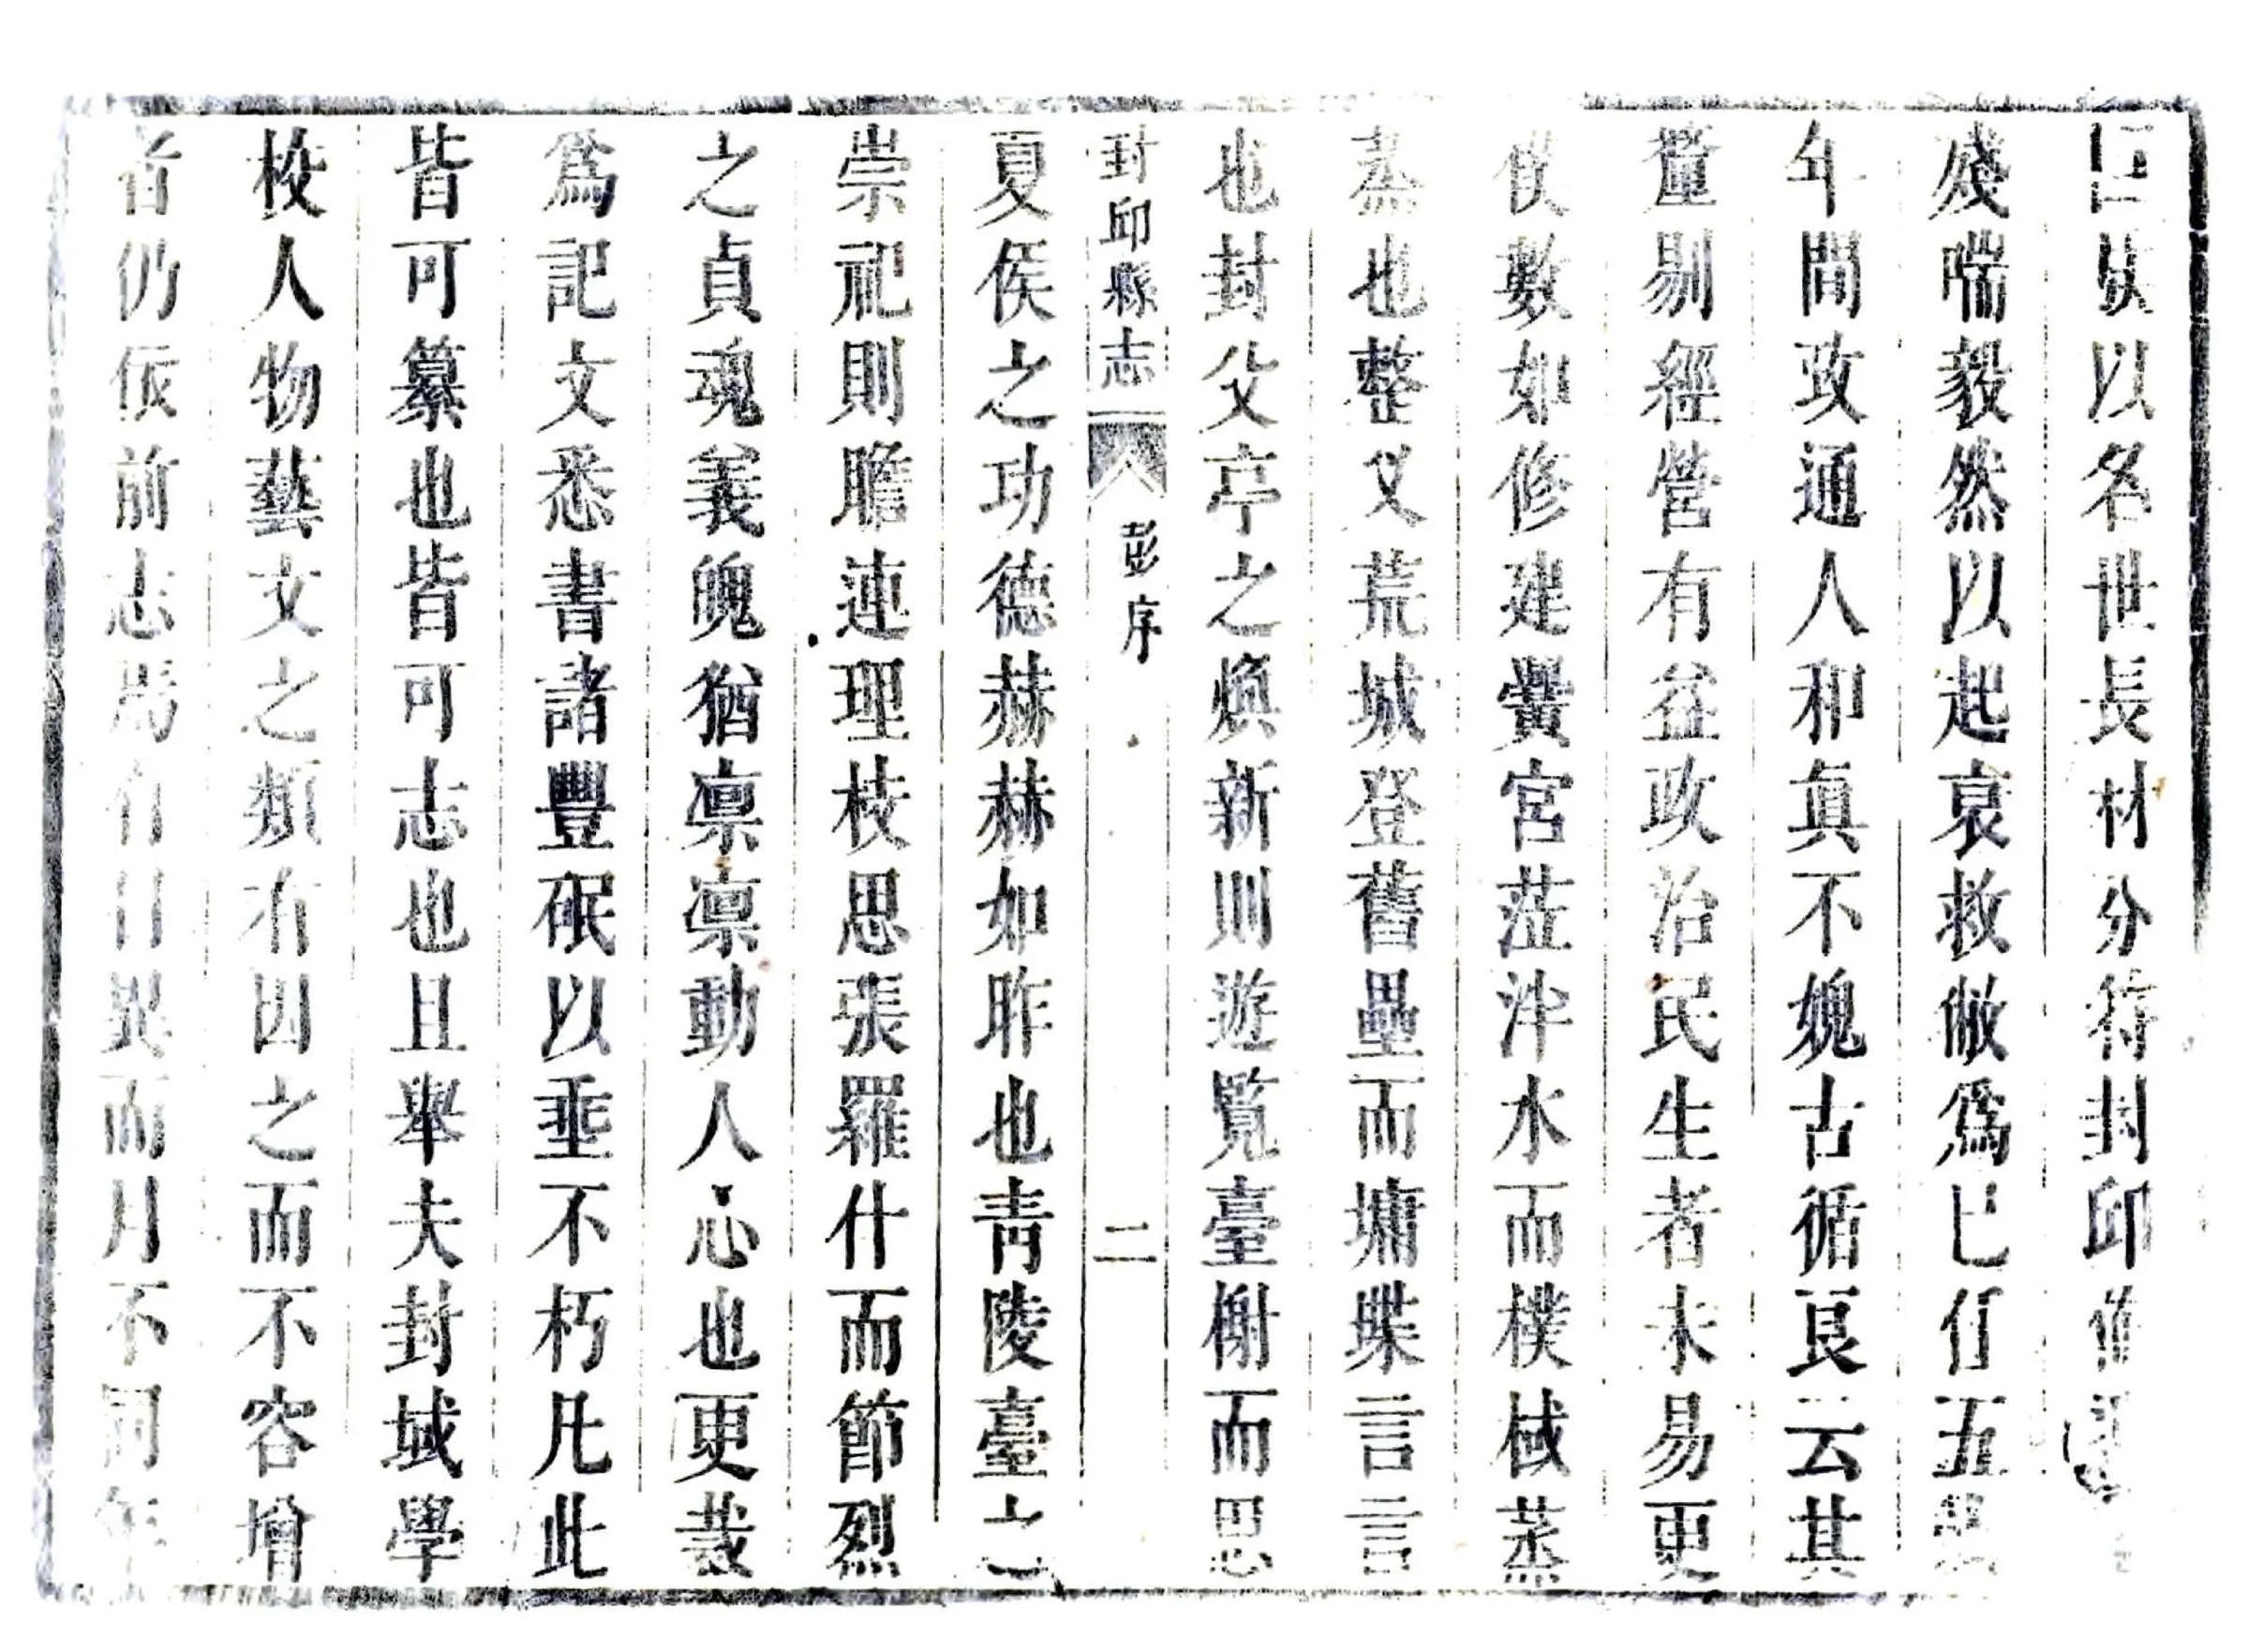 侯以名世長材分符封邱
殘喘毅然以起衰救敝爲己任五
年間政通人和眞不媿古循良云其
釐剔經營有益政治民生者未易更
僕數如修建黌宮蒞泮水而樸棫蒸
蒸也整乂荒城登舊壘而墉堞言言
也封父亭之煥新則遊覽臺榭而思
封邱縣志
彭序
二
夏侯之功德赫赫如昨也靑陵臺之
崇祀則瞻連理枝思張羅什而節烈
之貞魂義魄猶凜凜動人心也更裁
爲記文悉書諸豐碑以垂不朽凡此
皆可纂也皆可志也且舉夫封域學
校人物藝文之類有因之而不容增
者仍依前志焉有日異而月不同年